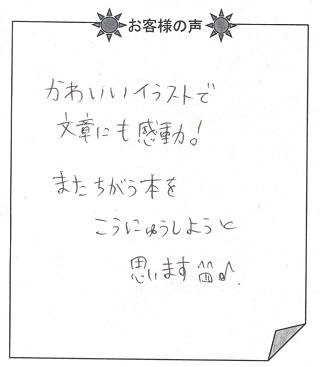 お客様の声
かわいいイラストで
文章にも感動!
またちがう本を
こうにゅうしようと
思います^^♪.